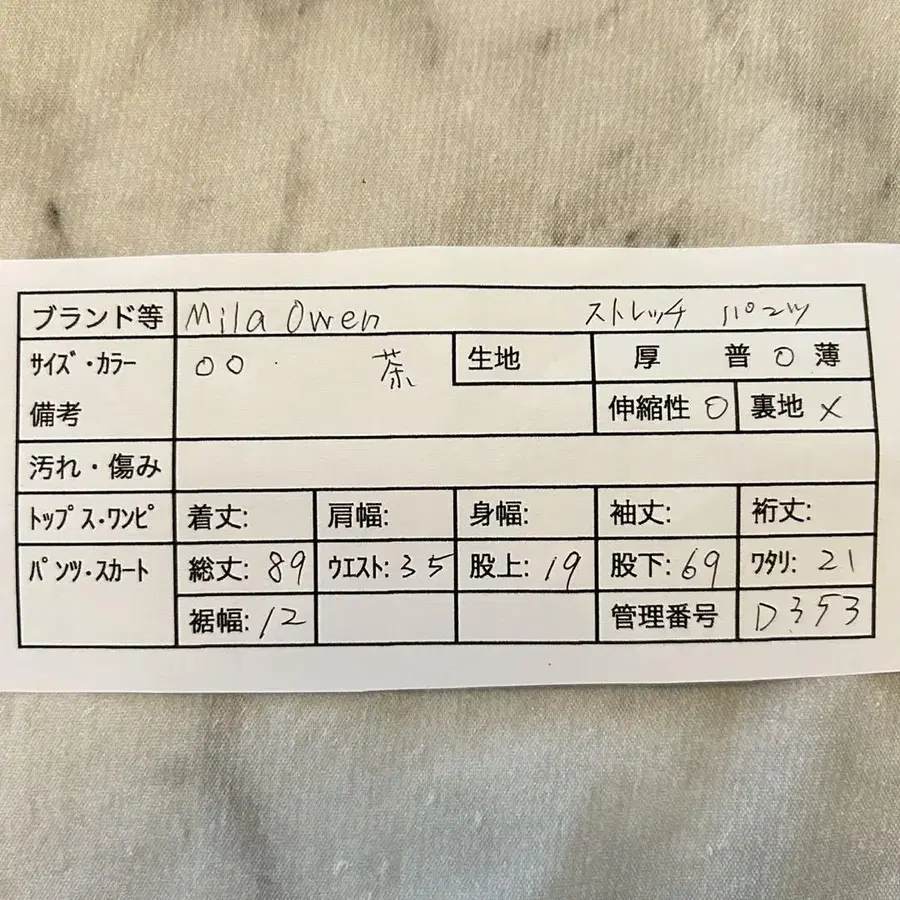 ブランド等 Mila Owen ストレッチ パンツ
サイズ・カラー 00 茶 生地 厚 普 ○ 薄
備考 伸縮性 ○ 裏地 ×
汚れ・傷み
トップス・ワンピ 着丈: 肩幅: 身幅: 袖丈: 裄丈:
パンツ・スカート 総丈: 89 ウエスト: 35 股上: 19 股下: 69 ワタリ: 21
裾幅: 12 管理番号 D353